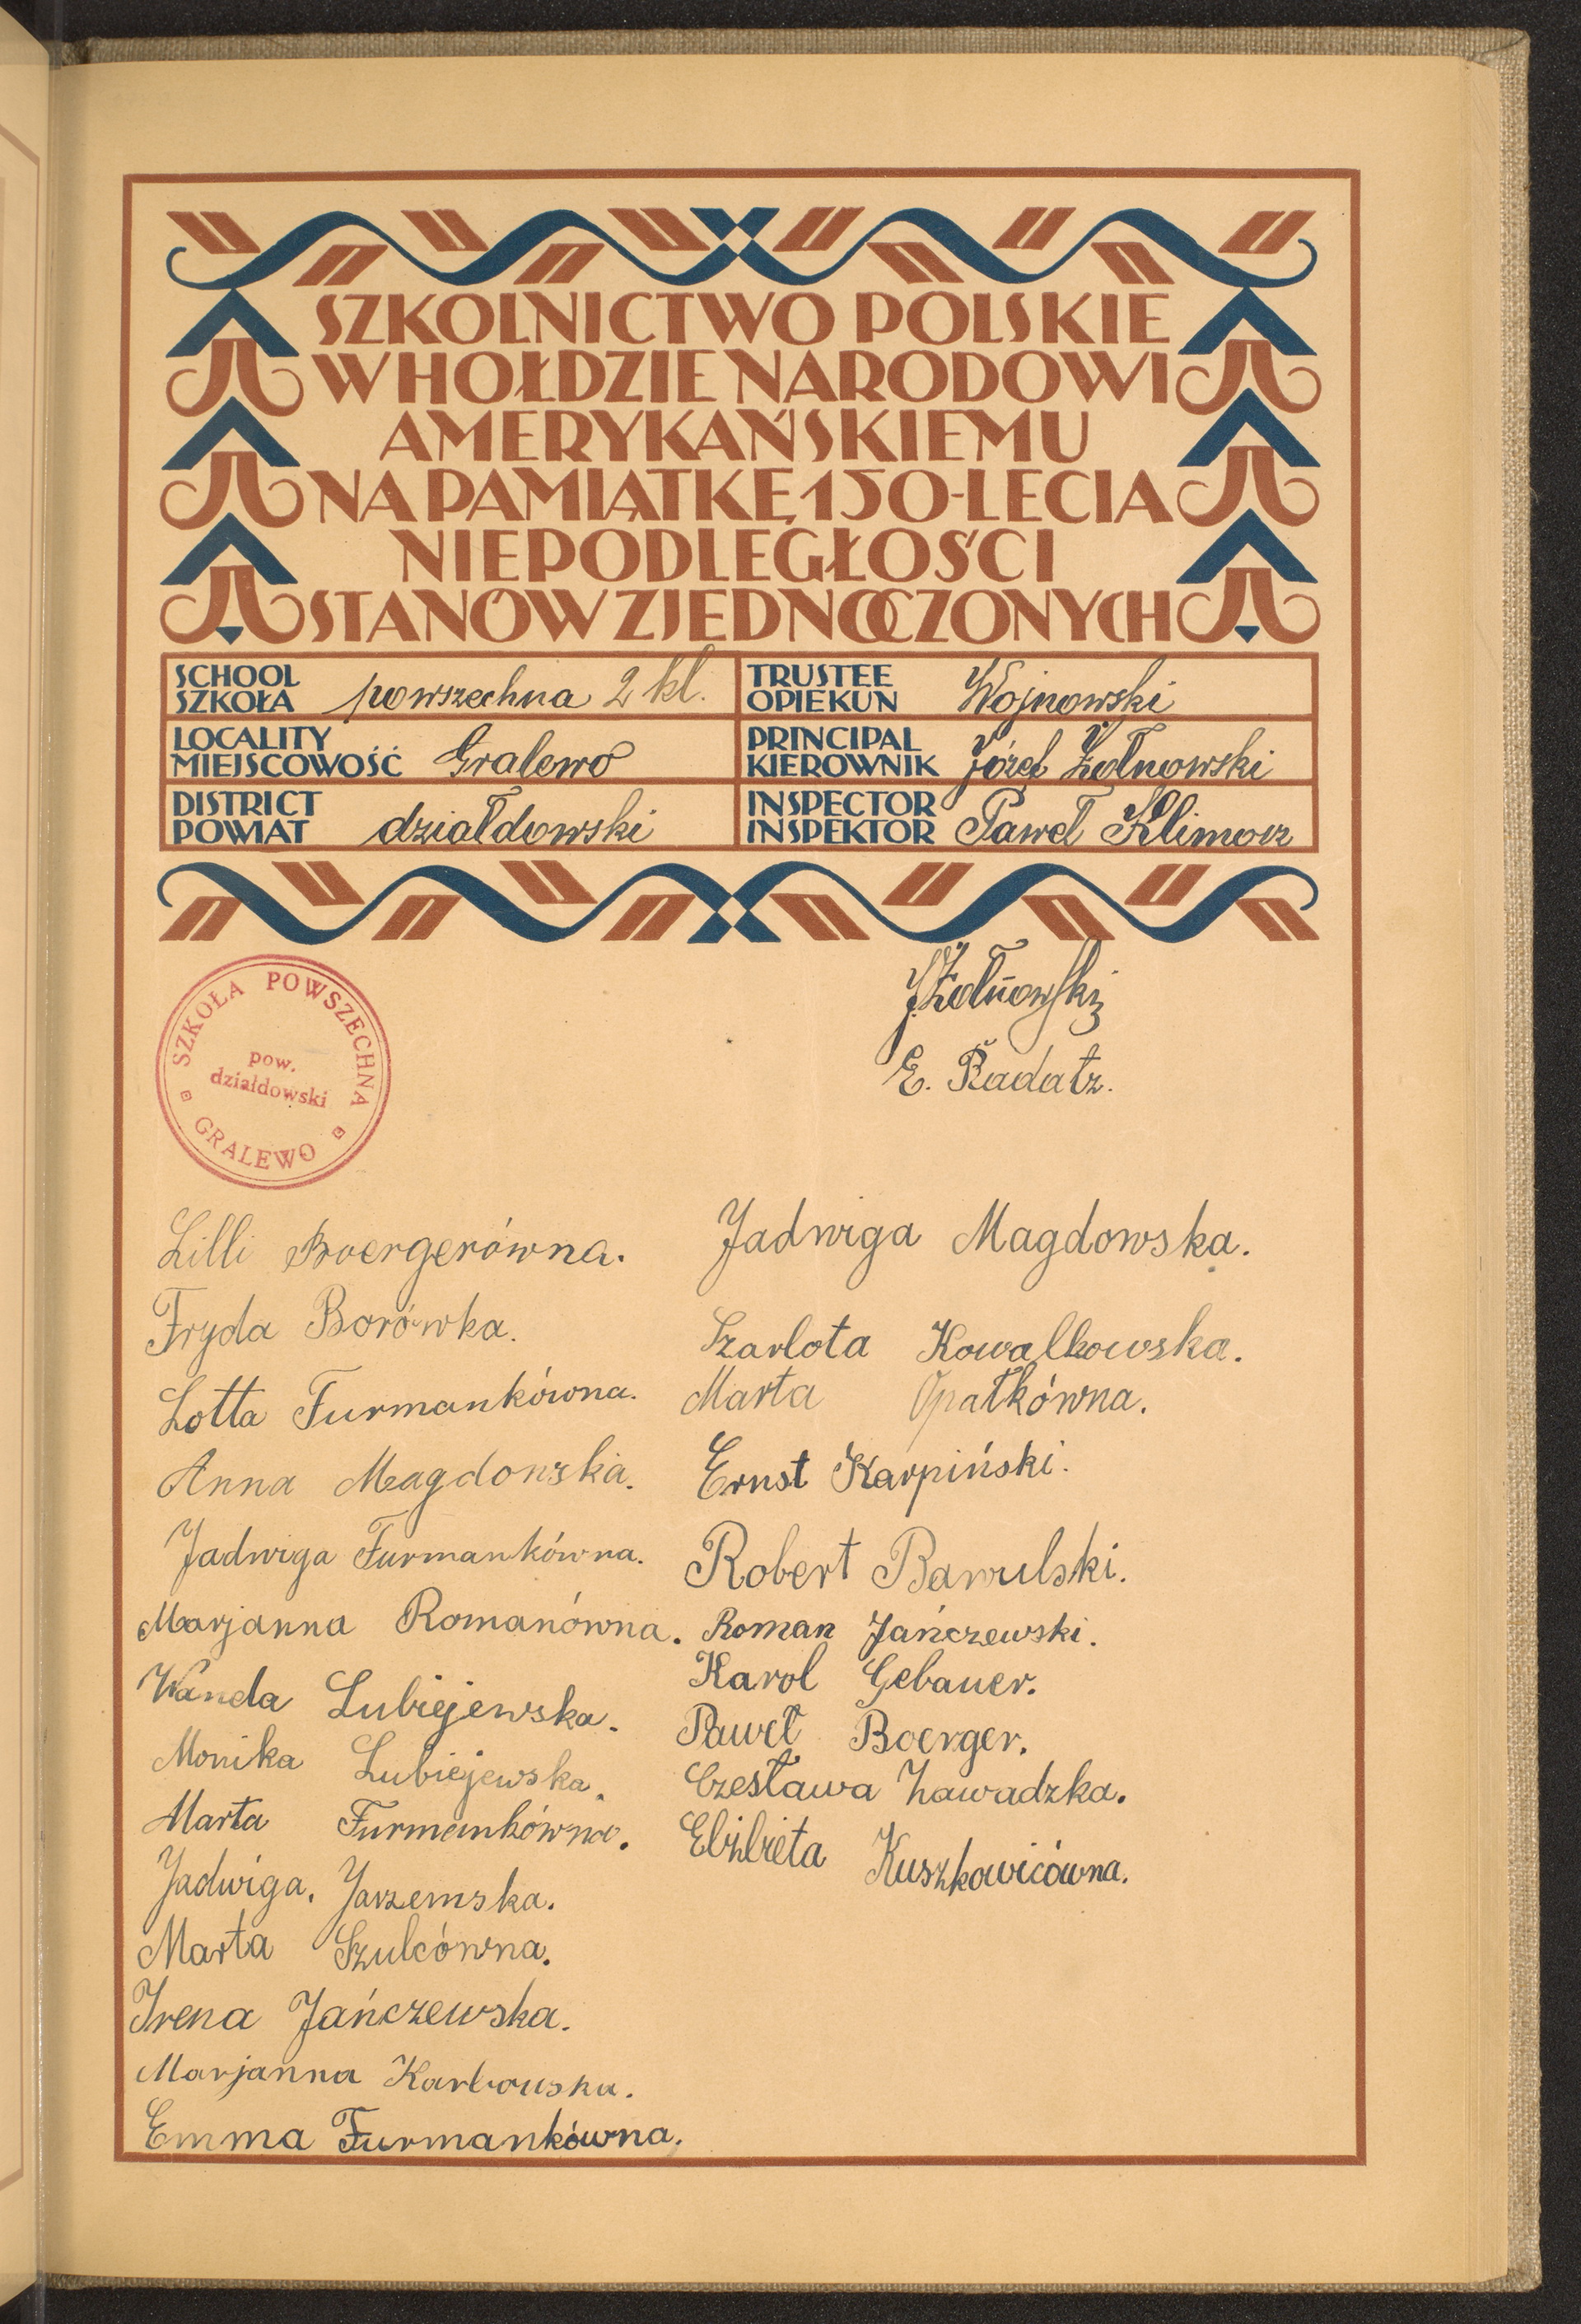 SZKOLNICTWO POLSKIE
W HOŁDZIE NARODOWI
AMERYKAŃSKIEMU
NA PAMIĄTKĘ 150-LECIA
NIEPODLEGŁOŚCI
STANÓW ZJEDNOCZONYCH
SCHOOL
SZKOŁA powszechna 2 kl.
TRUSTEE
OPIEKUN Wojnowski
LOCALITY
MIEJSCOWOŚĆ Gralewo
PRINCIPAL
KIEROWNIK Józef Żołnowski
DISTRICT
POWIAT działdowski
INSPECTOR
INSPEKTOR Paweł Klimosz
SZKOŁA POWSZECHNA
pow.
działdowski
GRALEWO
J. Żołnowski
E. Radatz.
Lilli Boergerówna.
Fryda Borówka.
Lotta Furmankówna.
Anna Magdowska.
Jadwiga Furmankówna.
Marjanna Romanówna.
Wanda Lubiejewska.
Monika Lubiejewska.
Marta Furmankówna.
Jadwiga. Jarzemska.
Marta Szulcówna.
Irena Jańczewska.
Marjanna Karbowska.
Emma Furmankówna.
Jadwiga Magdowska.
Szarlota Kowalkowska.
Marta Opałkówna.
Ernst Karpiński.
Robert Bawulski.
Roman Jańczewski.
Karol Gebauer.
Paweł Boerger.
Czesława Zawadzka.
Elżbieta Kuszkowicówna.